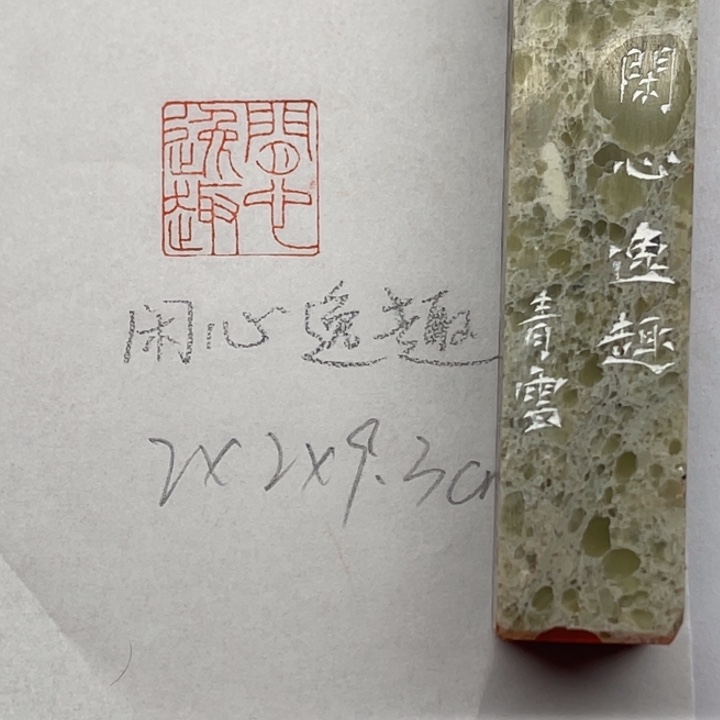 閒心
逸趣
闲心逸趣
2×2×9.3cm
閑心逸趣
青雲